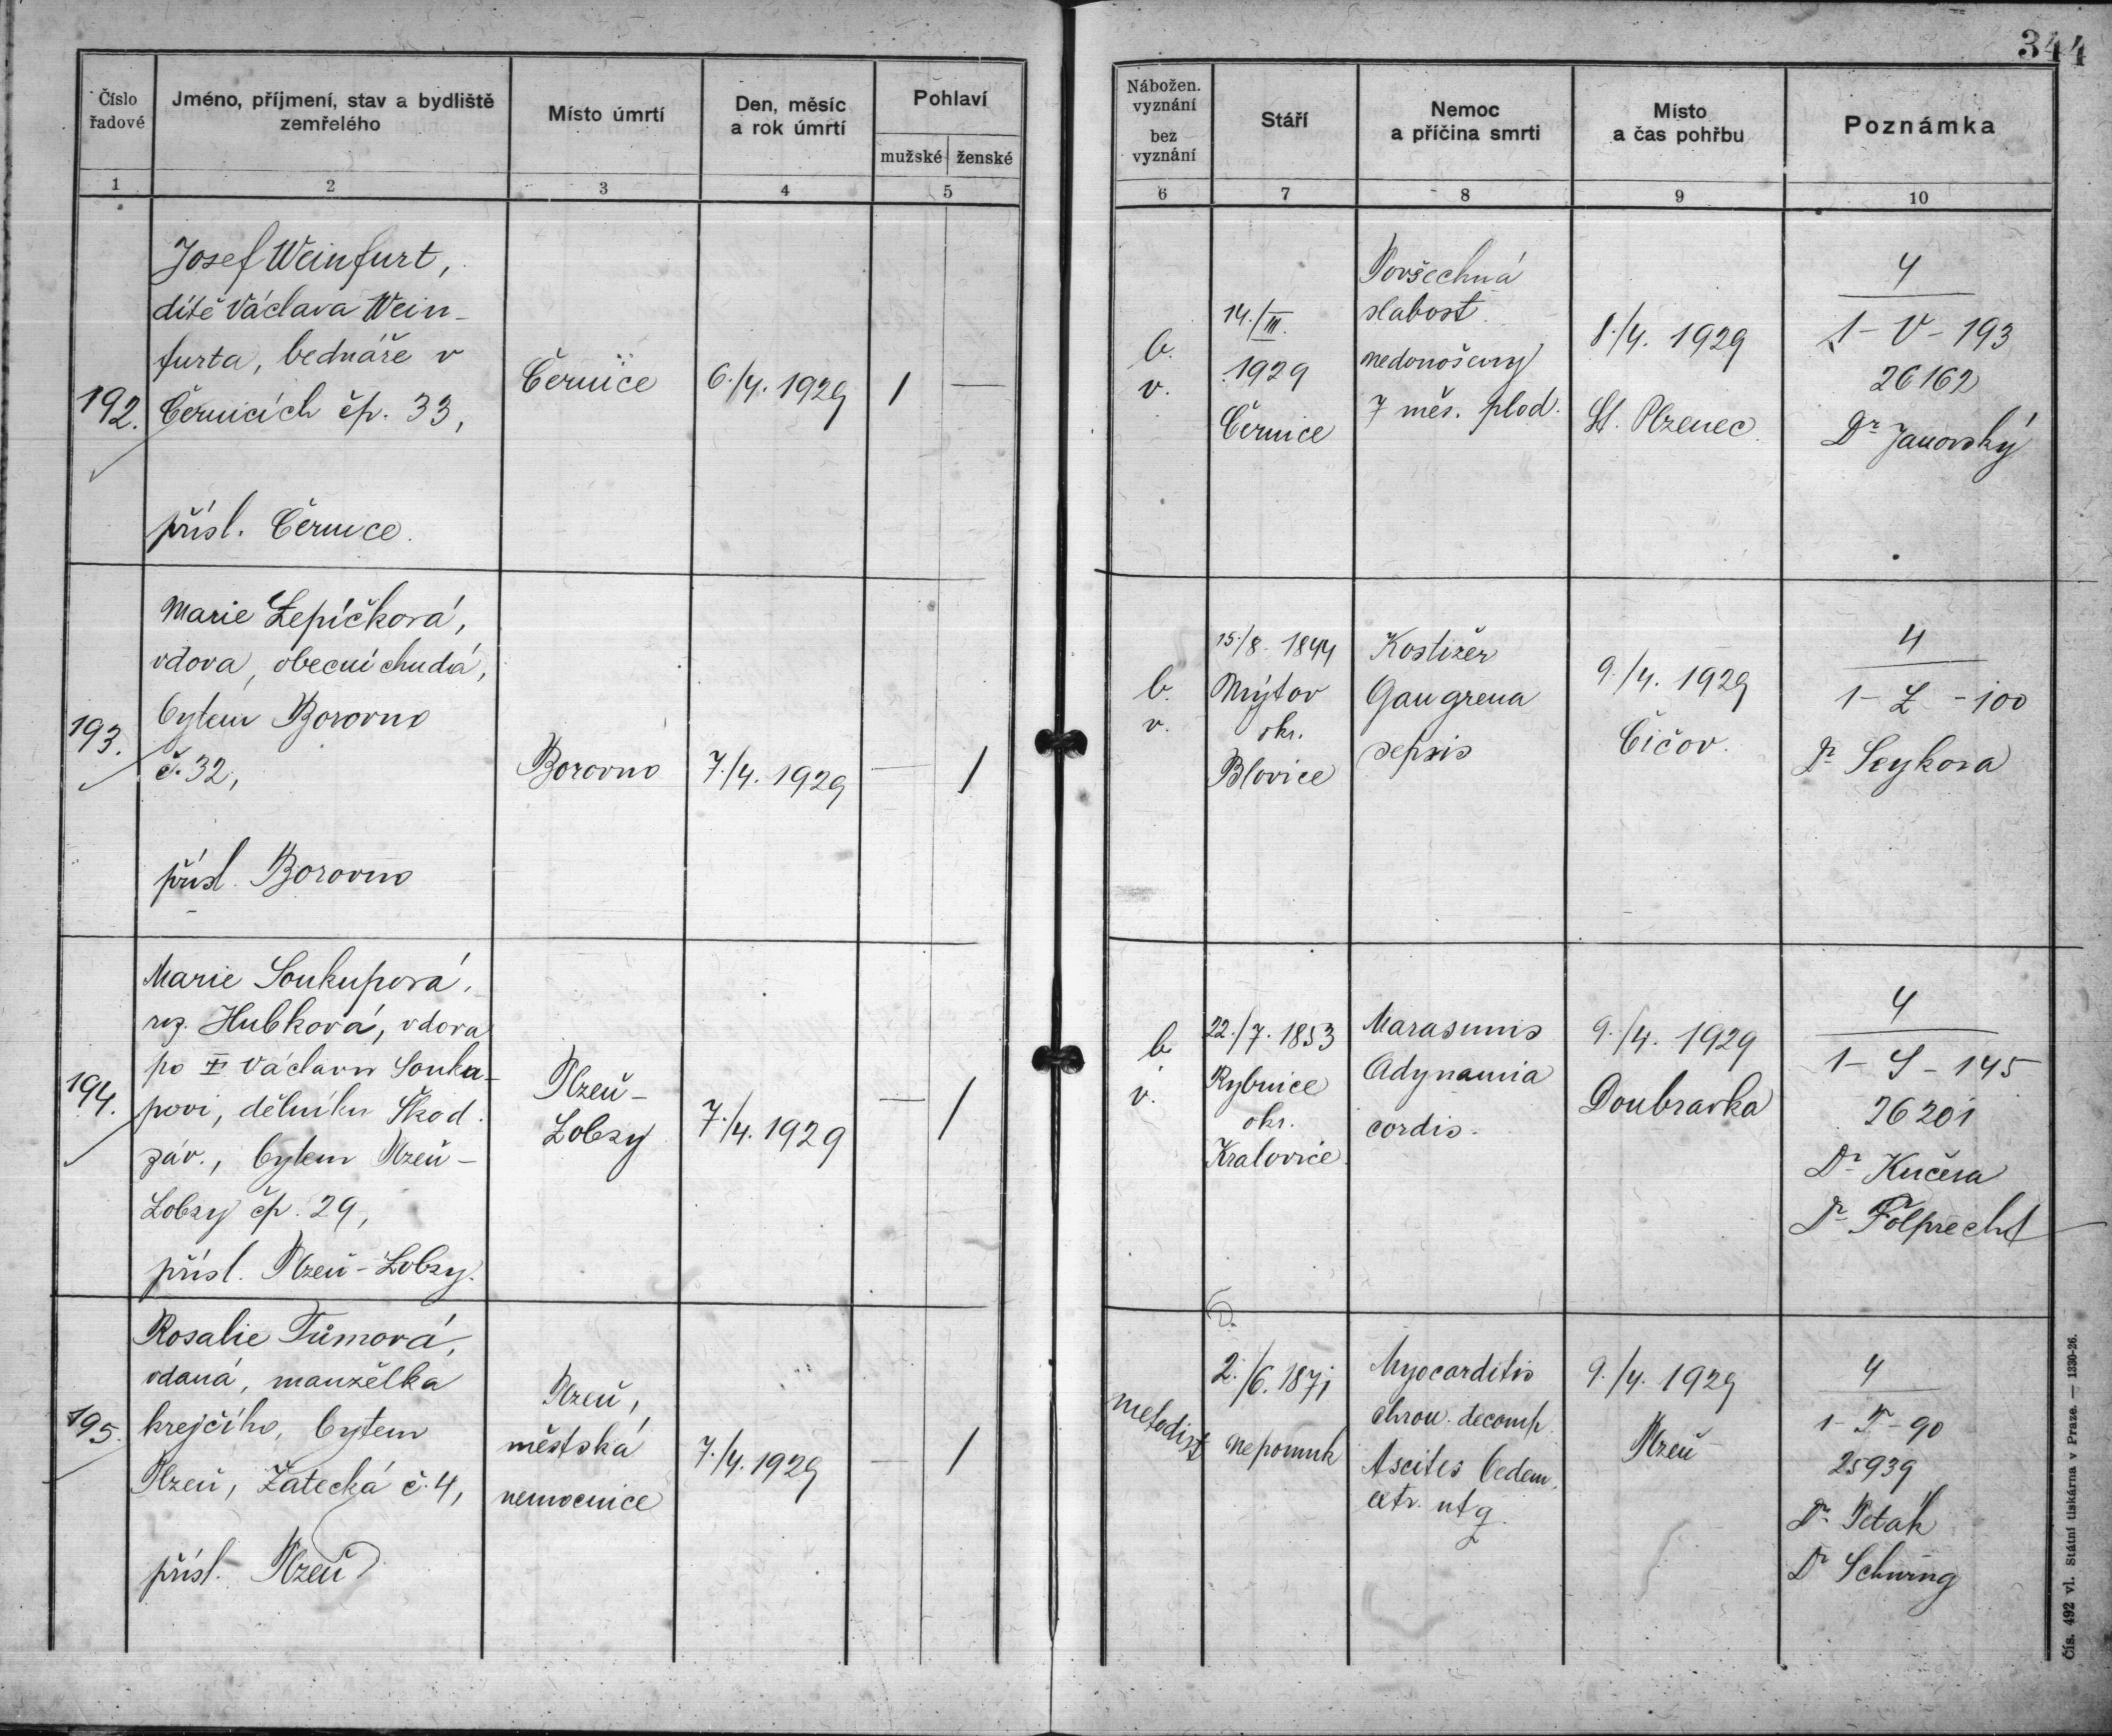 344
Číslo řadové
Jméno, příjmení, stav a bydliště zemřelého
Místo úmrtí
Den, měsíc a rok úmrtí
Pohlaví
mužské ženské
Nábožen. vyznání
bez vyznání
Stáří
Nemoc a příčina smrti
Místo a čas pohřbu
Poznámka
1 2 3 4 5 6 7 8 9 10
192.
Josef Weinfurt,
dítě Václava Wein-
furta, bednáře v
Černicích čp. 33,
přísl. Černice.
Černice
6./4. 1929
1 —
b.
v.
14./III.
1929
Černice
Povšechná
slabost
nedonošený
7 měs. plod.
8./4. 1929
St. Plzenec.
4
1-V-193
26162
Dr Janovský
193.
Marie Lepičková,
vdova, obecní chudá,
bytem Borovno
č. 32,
přísl. Borovno
Borovno
7./4. 1929
— 1
b.
v.
15./8. 1844
Mýtov
okr.
Blovice
Kostižer
Gangrena
sepsis
9./4. 1929
Čičov.
4
1-L-100
Dr Seykora
194.
Marie Soukupová,
roz. Hubková, vdova
po Václavu Souku-
povi, dělníku Škod.
záv., bytem Plzeň-
Lobzy čp. 29,
přísl. Plzeň-Lobzy.
Plzeň-
Lobzy
7./4. 1929
— 1
b
v.
22./7. 1853
Rybnice
okr.
Kralovice
Marasmus
Adynamia
cordis.
9./4. 1929
Doubravka
4
1-S-145
26201
Dr Kučera
Dr Folprecht
195.
Rosalie Tůmová,
vdaná, manželka
krejčího, bytem
Plzeň, Žatecká č. 4,
přísl. Plzeň
Plzeň,
městská
nemocnice
7./4. 1929
— 1
metodist
2./6. 1871
Nepomuk
Myocarditis
chron. decomp.
Ascites Oedem.
9./4. 1929
Plzeň
4
1-T-90
25939
Dr. Peták
Dr Schwing
Čís. 492 vl. Státní tiskárna v Praze. — 1330-26.